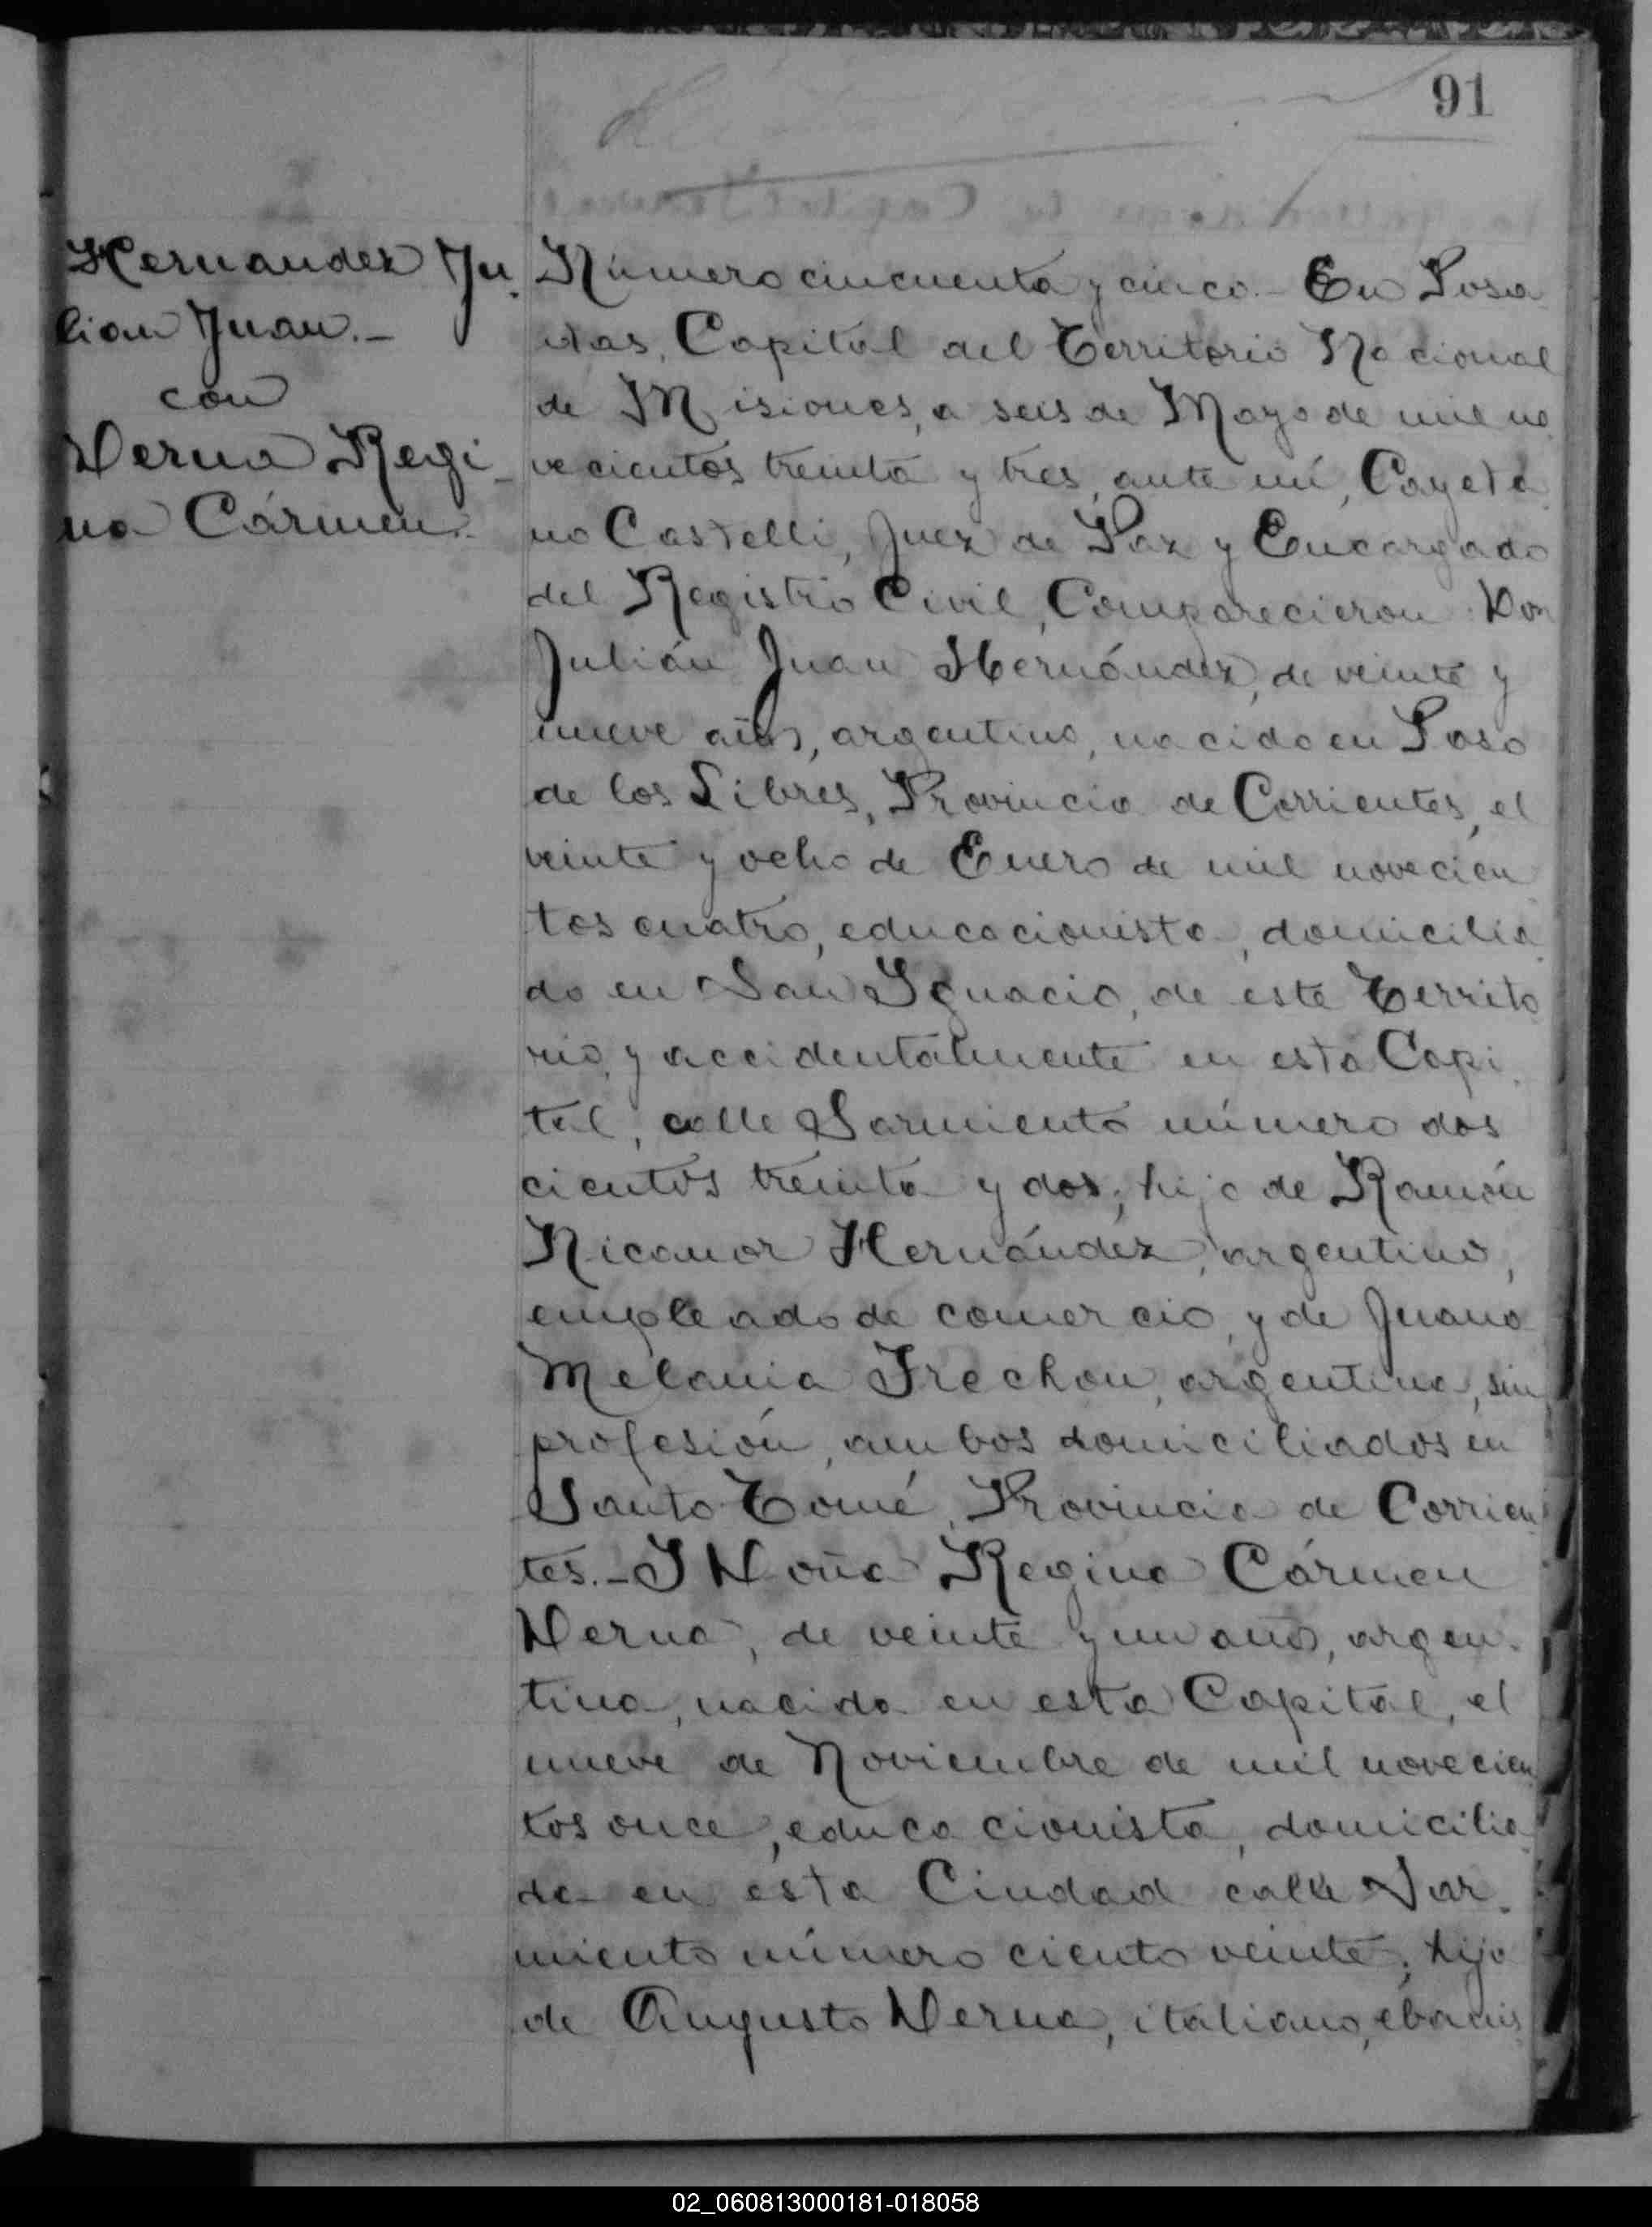 91
Hernandez Ju-
lian Juan.-
con
Derna Regi-
na Cármen.-
Número cincuenta y cinco.- En Posa
das, Capital del Territorio Nacional
de Misiones, a seis de Mayo de mil no
vecientos treinta y tres, ante mí, Cayeta
no Castelli, Juez de Paz y Encargado
del Registro Civil, Comparecieron: Don
Julián Juan Hernández, de veinte y
nueve años, argentino, nacido en Paso
de los Libres, Provincia de Corrientes, el
veinte y ocho de Enero de mil novecien
tos cuatro, educacionista, domicilia
do en San Ignacio, de este Territo
rio, y accidentalmente en esta Capi
tal, calle Sarmiento número dos
cientos treinta y dos; hijo de Ramón
Nicanor Hernández, argentino,
empleado de comercio, y de Juana
Melania Frechou, argentina, sin
profesión, ambos domiciliados en
Santo Tomé, Provincia de Corrien
tes.- Y Doña Regina Cármen
Derna, de veinte y un años, argen-
tina, nacida en esta Capital, el
nueve de Noviembre de mil novecien
tos once, educacionista, domicilia
da en esta Ciudad calle Sar-
miento número ciento veinte; hija
de Augusto Derna, italiano, ebanis
02_060813000181-018058